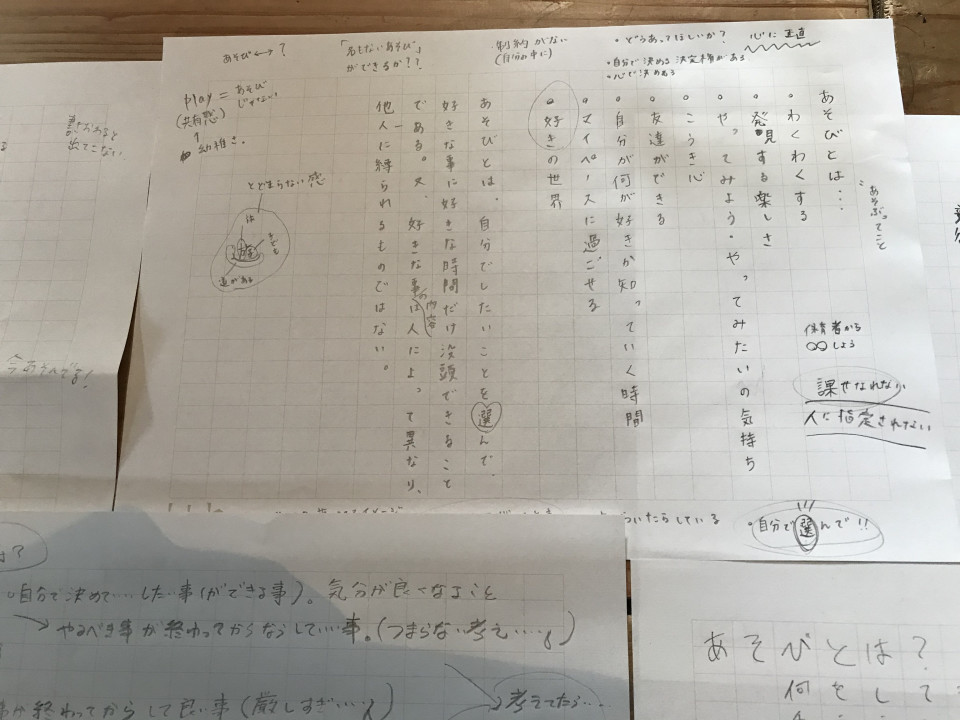 あそび←→?
「名もないあそび」
ができるか??
・制約がない
(自分の中に)
・どうあってほしいか?
心に正直
・自分で決める 決定権がある
・心で決める
play=あそび
じゃない!
(共有感)
↑
幼稚さ
とどまらない感
は
子ども
遊
道がある
書きおわると
出てこない
あそびとは…
あそぶってこと
。わくわくする
。発見する楽しさ
。やってみよう・やってみたいの気持ち
。こうき心
。友達ができる
。自分が何が好きか知っていく時間
。マイペースに過ごせる
。好きの世界
あそびとは、自分でしたいことを選んで、
好きな事に好きな時間だけ没頭できること
である。又、好きな事の内容は人によって異なり、
他人に縛られるものではない。
保育者から
○○しよう
課せられない
人に指定されない
ついたらしている
・自分で選んで!!
今あそんでる!
は?
・自分で決めて…したい事(ができる事)。気分が良くなること
→やるべき事が終わってからなうしていい事。(つまらない考え…。)
事が終わってからして良い事(厳しすぎ…。)
→考えてたら…
あそびとは?
何をして